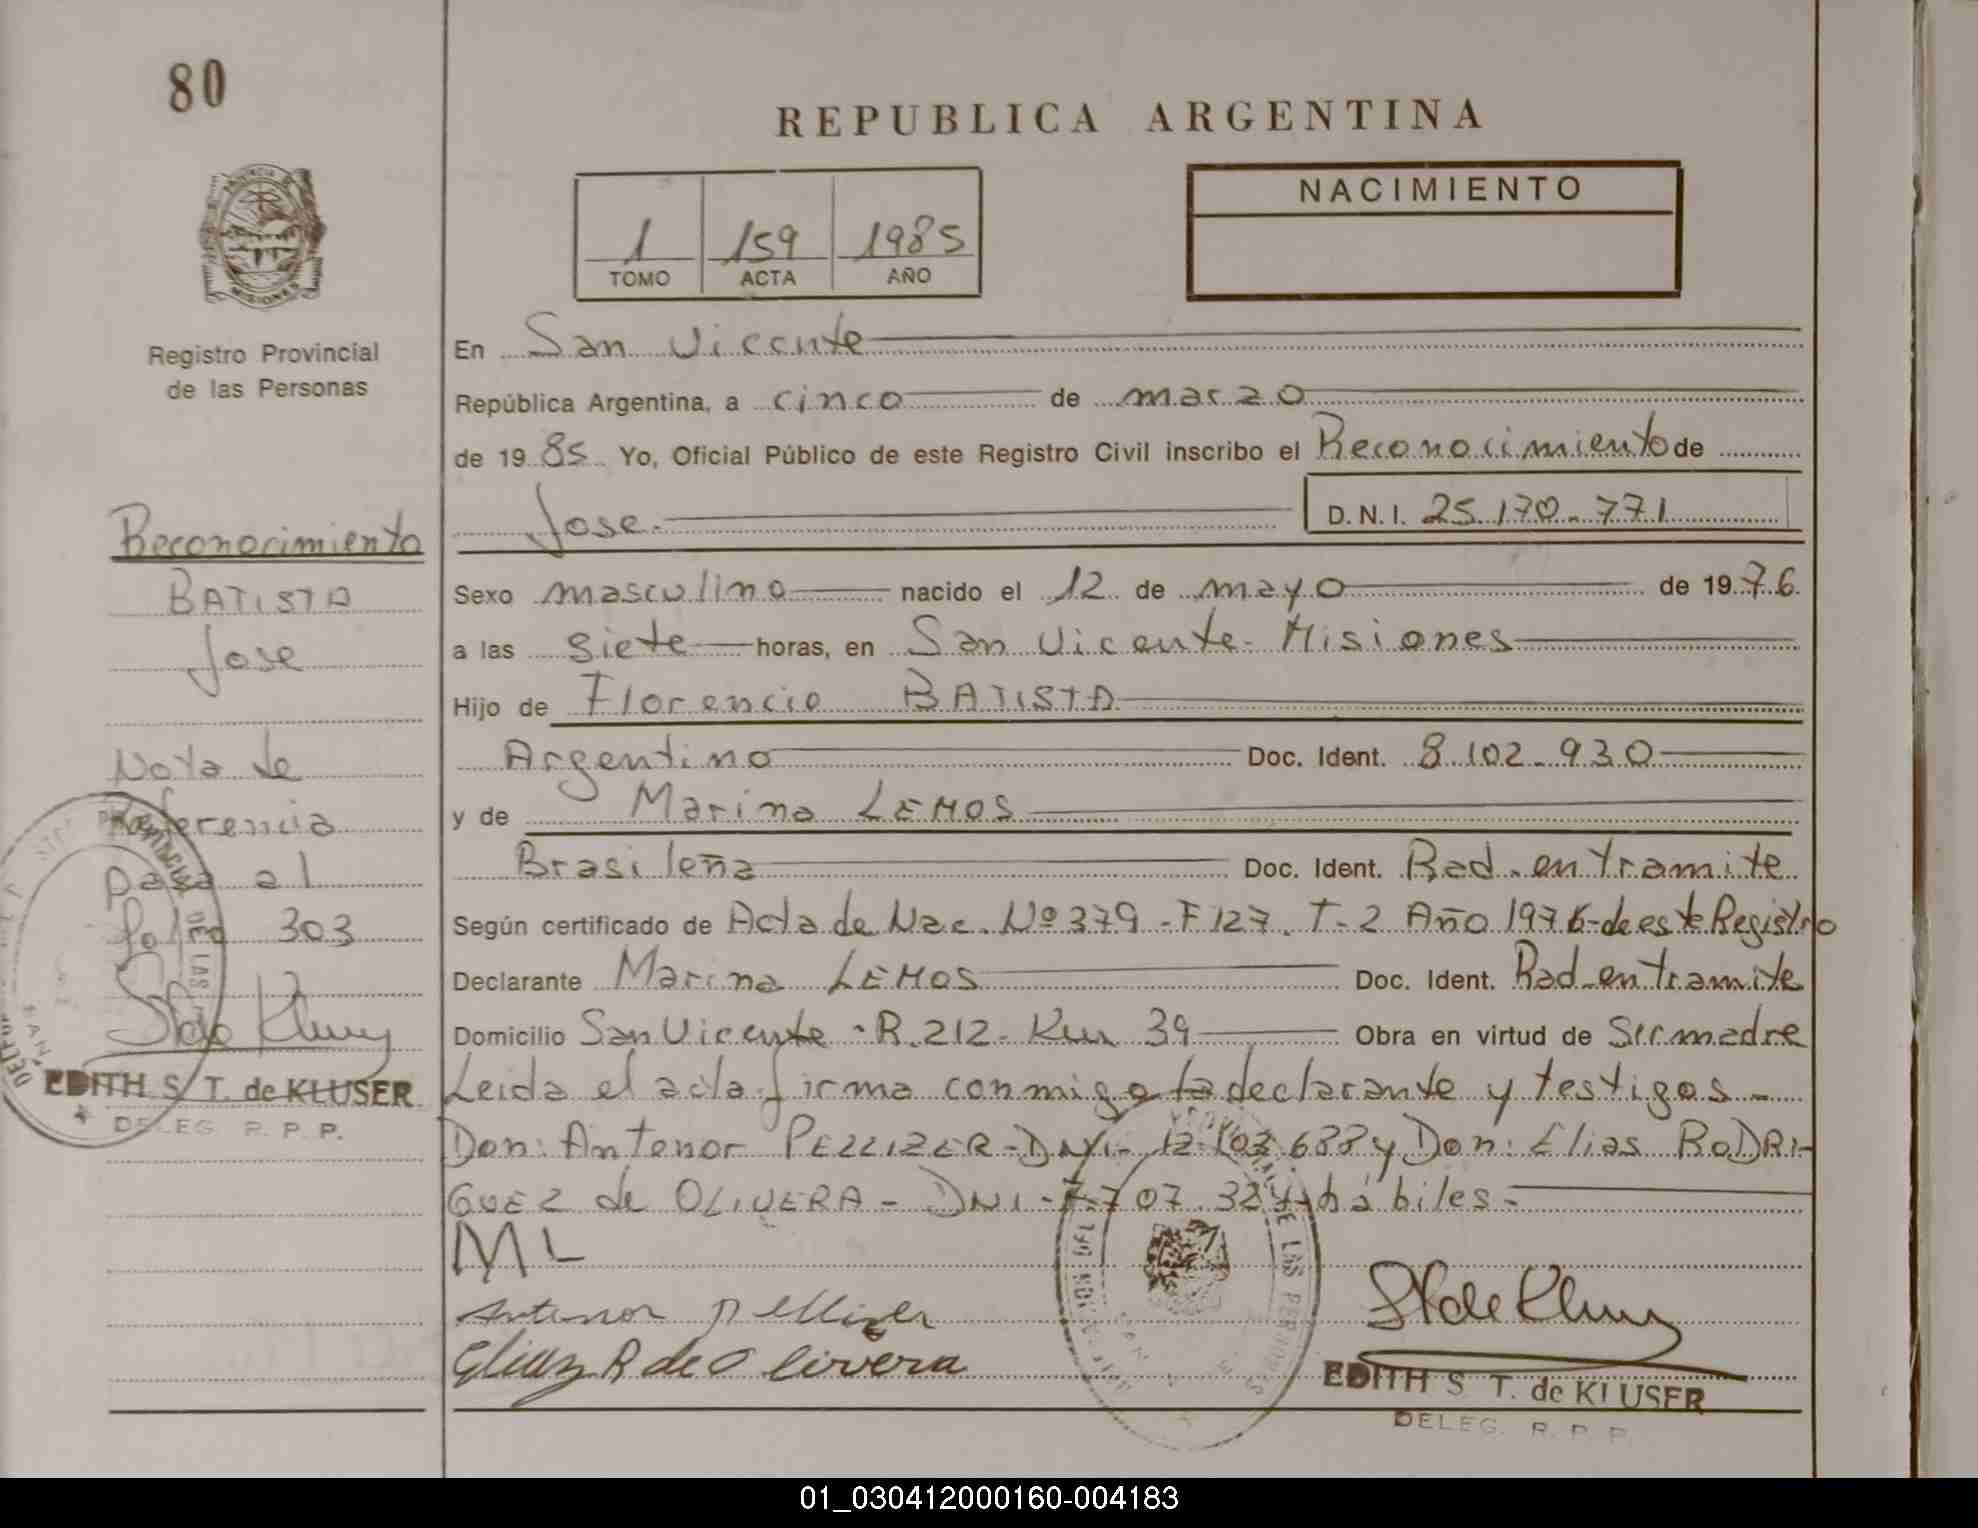 80
REPUBLICA ARGENTINA
PROVINCIA DE
MISIONES
Registro Provincial
de las Personas
1 159 1985
TOMO ACTA AÑO
NACIMIENTO
En San Vicente
República Argentina, a cinco de marzo
de 1985 Yo, Oficial Público de este Registro Civil inscribo el Reconocimiento de
Jose. D.N.I. 25.170.771
Sexo masculino nacido el 12 de mayo de 1976
a las siete horas, en San Vicente - Misiones
Hijo de Florencio BATISTA
Argentino Doc. Ident. 8.102.930
y de Marina LEMOS
Brasileña Doc. Ident. Rad. en tramite
Según certificado de Acta de Nac. Nº 379 - F 127. T-2 Año 1976 - de este Registro
Declarante Marina LEMOS Doc. Ident. Rad. en tramite
Domicilio San Vicente - R. 212 - Km 39 Obra en virtud de Ser madre
Leida el acta firma conmigo la declarante y testigos -
Don: Antenor PELLIZER - DNI - 12.103.688 y Don: Elias RODRI-
GUEZ de OLIVERA - DNI - 7.707.324 - hábiles -
ML
Antenor Pellizer
Elias R de Olivera
ST de Kluser
EDITH S T. de KLUSER
DELEG. R. P. P.
Reconocimiento
BATISTA
Jose
Nota de
Referencia
pasa al
folio 303
ST de Kluser
EDITH S T. de KLUSER
DELEG R. P. P.
01_030412000160-004183